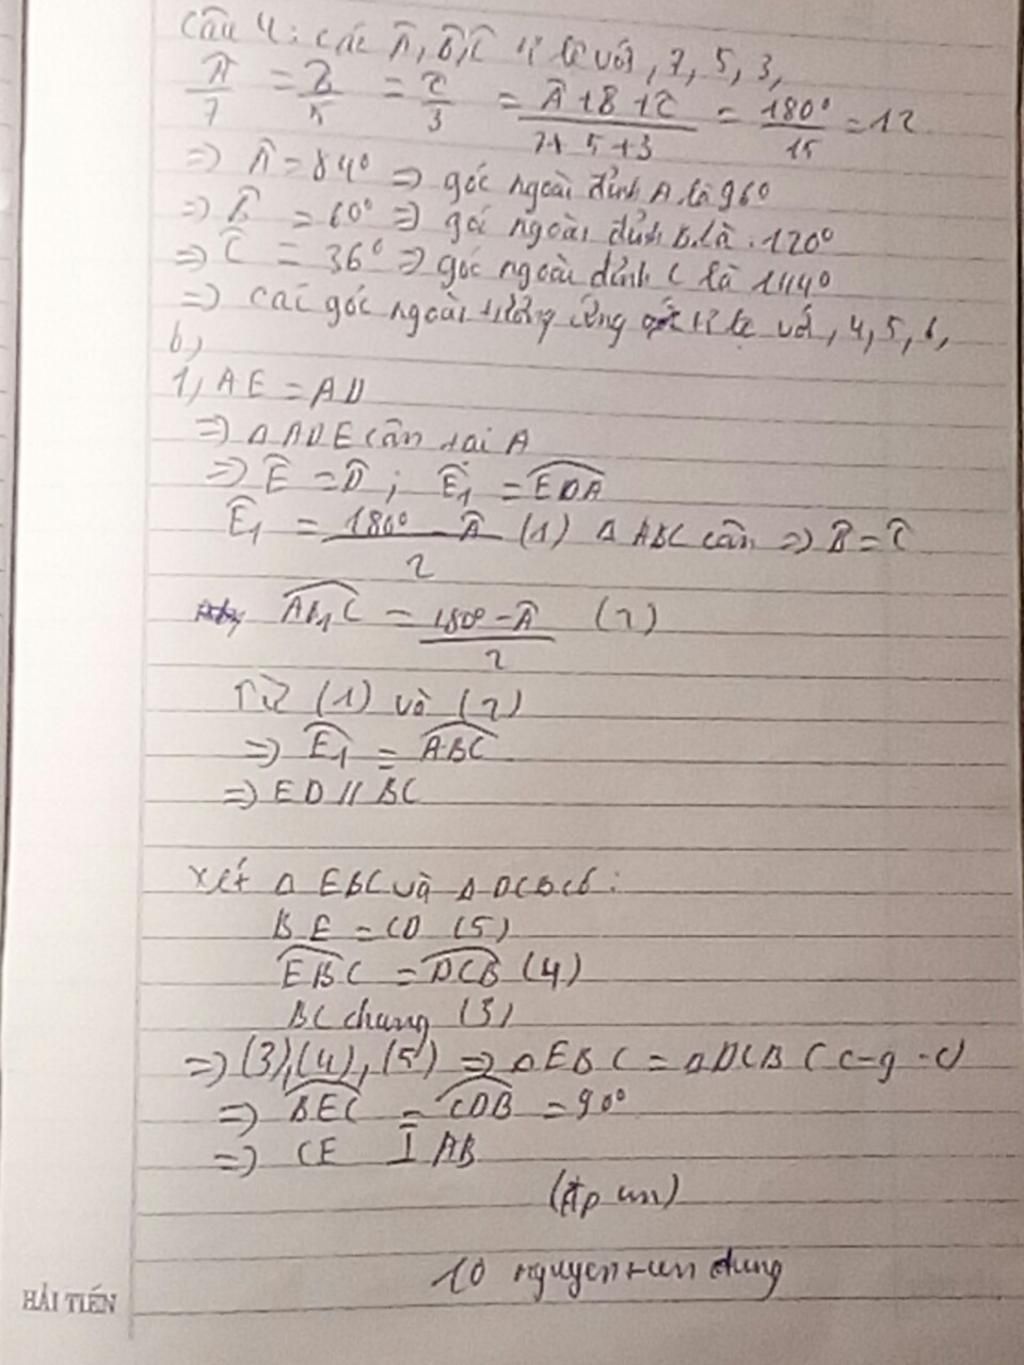 Câu 4: các Â, B̂, Ĉ tỉ lệ với, 7, 5, 3,
Â/7 = B̂/5 = Ĉ/3 = (Â+B+Ĉ)/(7+5+3) = 180°/15 = 12
=> Â = 84° => góc ngoài đỉnh A là 96°
=> B̂ = 60° => góc ngoài đỉnh B là: 120°
=> Ĉ = 36° => góc ngoài đỉnh C là 144°
=> các góc ngoài tương ứng tỉ lệ với, 4, 5, 6,
b,
1, AE = AD
=> Δ ADE cân tại A
=> Ê = D̂ ; Ê1 = EDA
Ê1 = (180° - Â)/2 (1) Δ ABC cân => B̂ = Ĉ
AB1C = (180° - Â)/2 (2)
Từ (1) và (2)
=> Ê1 = ABC
=> ED // BC
xét Δ EBC và Δ DCB có:
BE = CD (5)
EBC = DCB (4)
BC chung (3)
=> (3), (4), (5) => Δ EBC = Δ DCB (c-g-c)
=> BEC = CDB = 90°
=> CE ⊥ AB
HẢI TIẾN